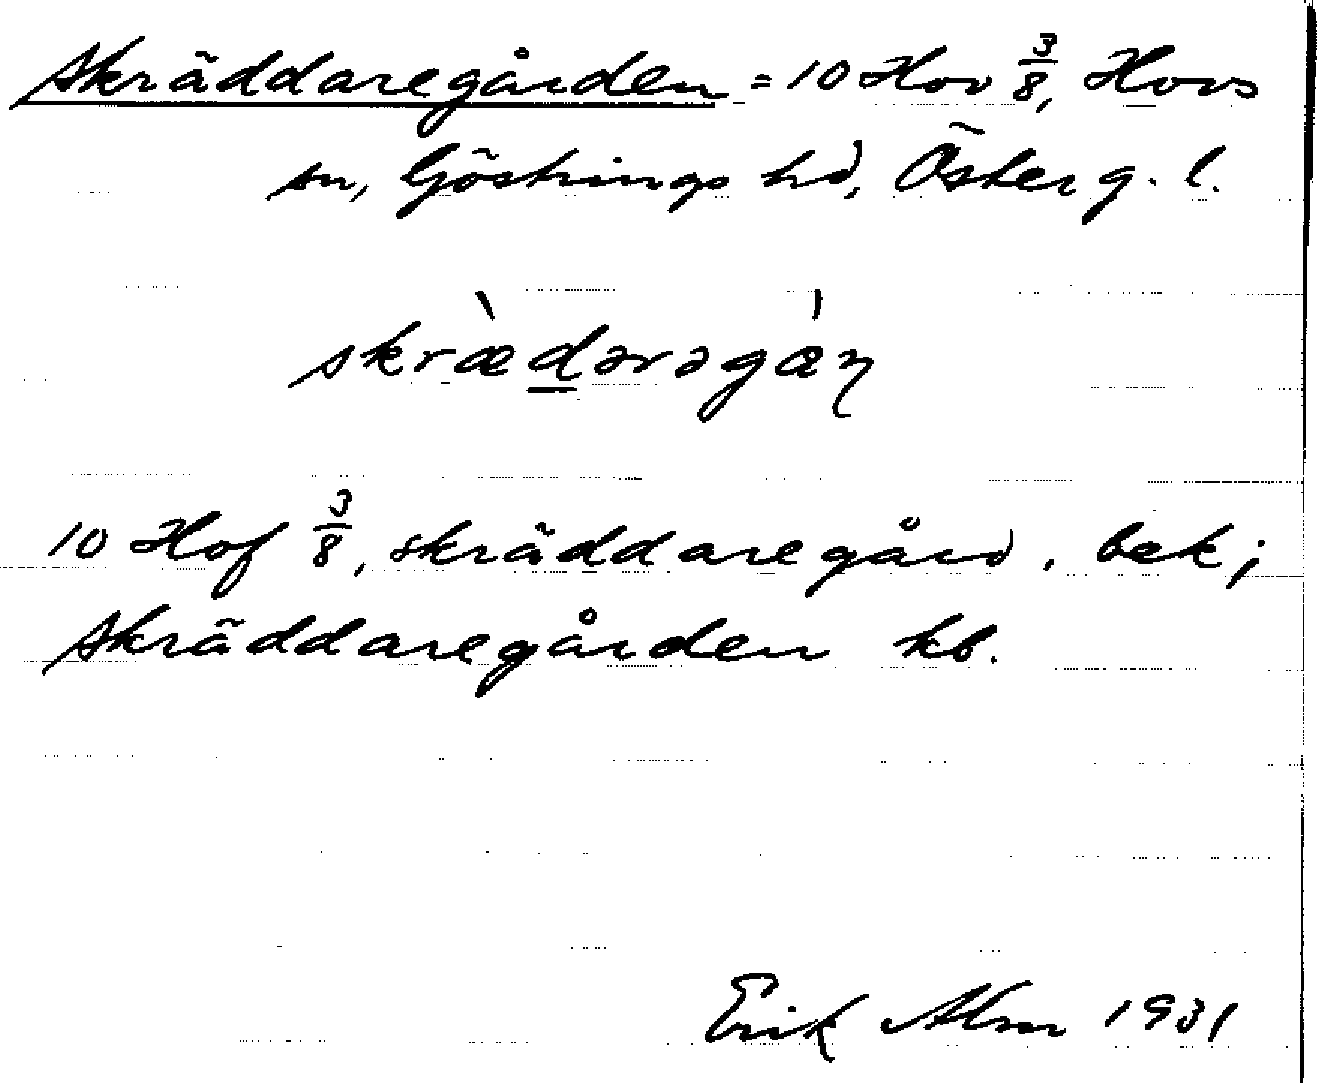 Skräddaregården = 10 Hov 3/8, Hovs
sn, Göstrings hd, Österg. l.
skræ̀dərəgæ̀ŋ
10 Hof 3/8, skräddaregård, bek;
Skräddaregården kb.
Erik Alm 1931